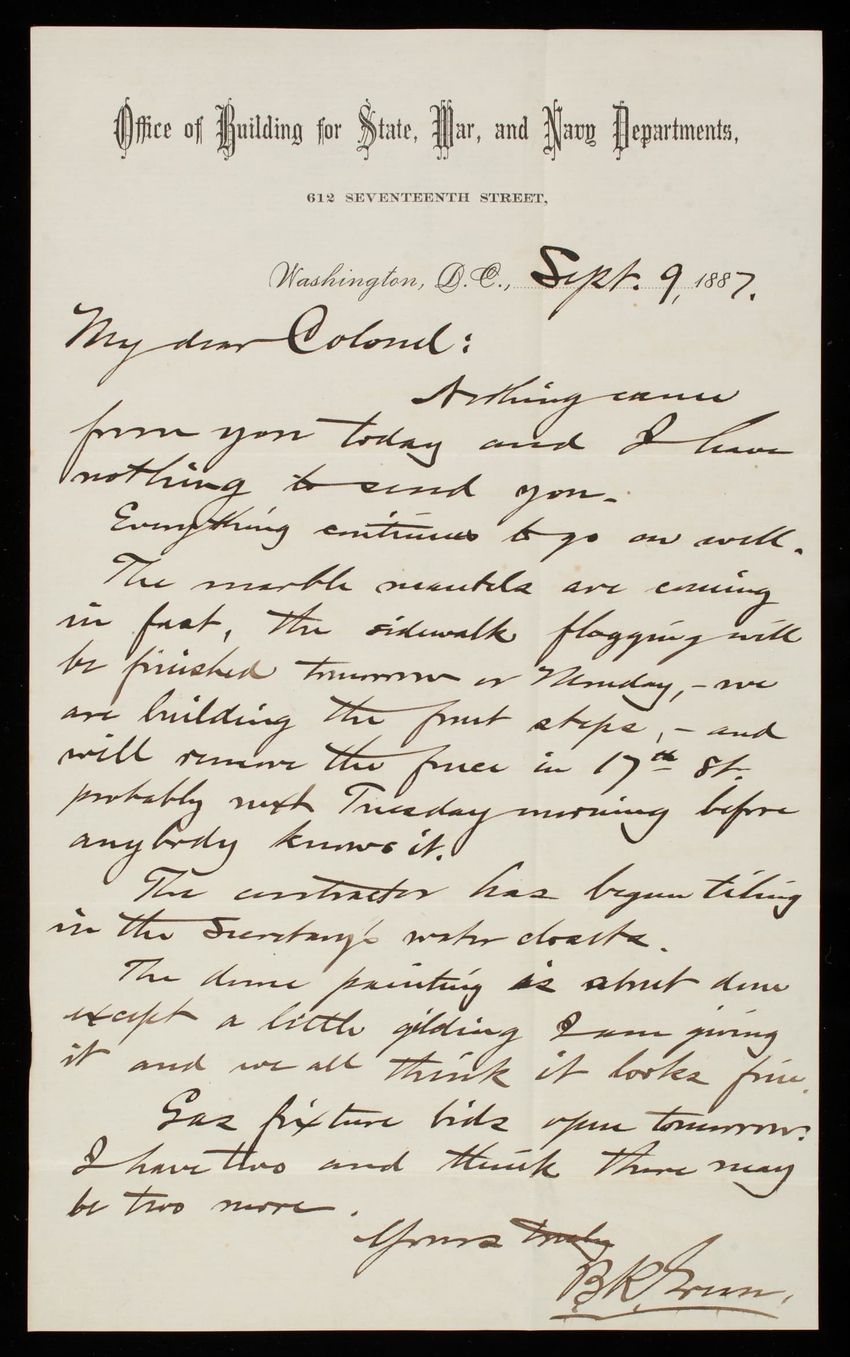 Office of Building for State, War, and Navy Departments,
612 SEVENTEENTH STREET,
Washington, D.C., Sept. 9, 1887.
My dear Colonel:
Nothing came
from you today and I have
nothing to send you.
Everything continues to go on well.
The marble mantels are coming
in fast, the sidewalk flagging will
be finished tomorrow or Monday, - we
are building the front steps, - and
will remove the fence in 17th St.
probably next Tuesday morning before
anybody knows it.
The contractor has begun tiling
in the Secretary's water closets.
The dome painting is about done
except a little gilding I am giving
it and we all think it looks fine.
Gas fixture bids open tomorrow:
I have two and think there may
be two more.
Yours truly
B.R. Green.